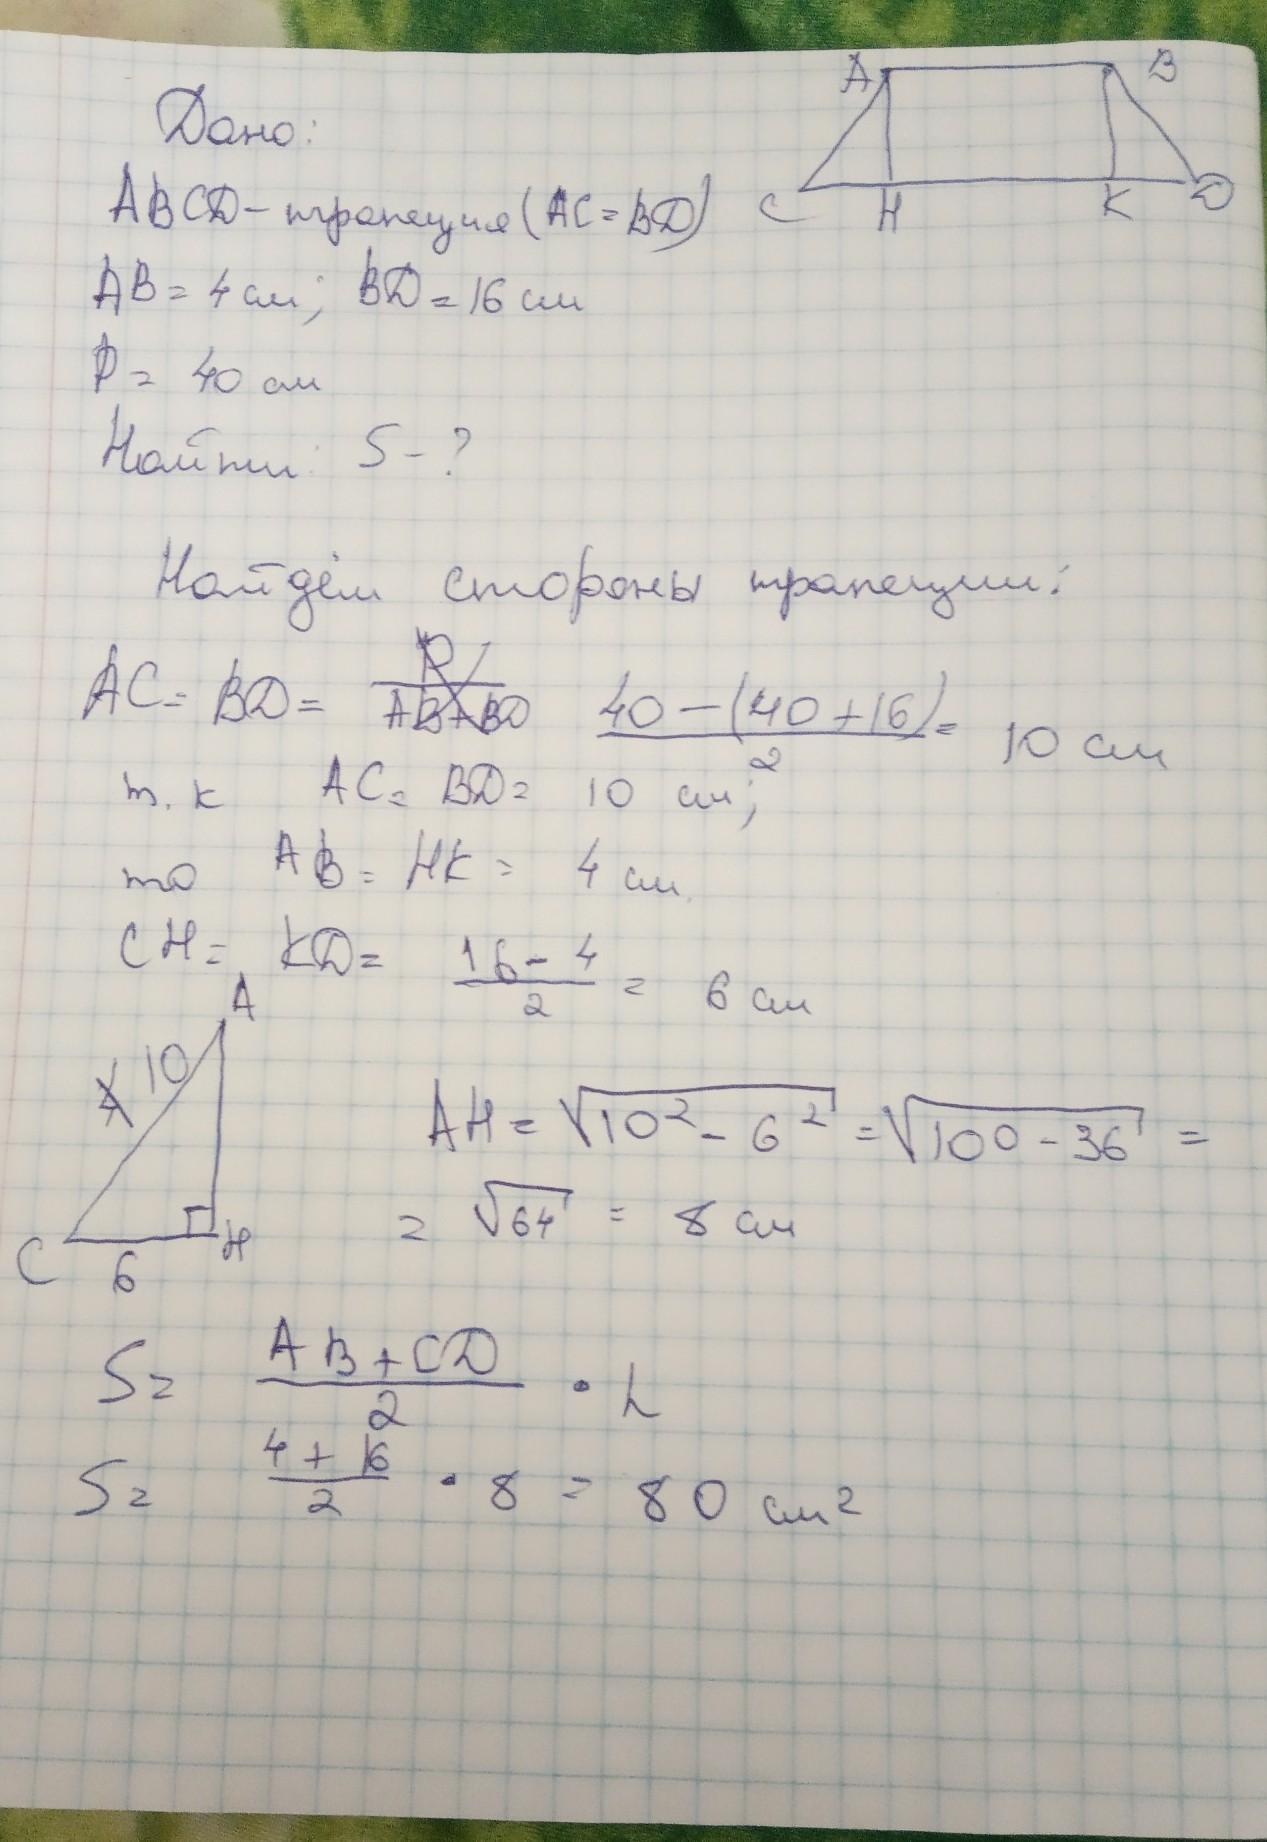 A B
C H K D
Дано:
ABCD - трапеция (AC = BD)
AB = 4 см; BD = 16 см
P = 40 см
Найти: S - ?
Найдём стороны трапеции:
AC = BD = P/AB+BD (40 - (40 + 16))/2 = 10 см
т.к AC = BD = 10 см;
то AB = HK = 4 см.
CH = KD = (16 - 4)/2 = 6 см
A
4 10
C 6 H
AH = √(10² - 6²) = √(100 - 36) =
= √64 = 8 см
S = (AB + CD)/2 · h
S = (4 + 16)/2 · 8 = 80 см²